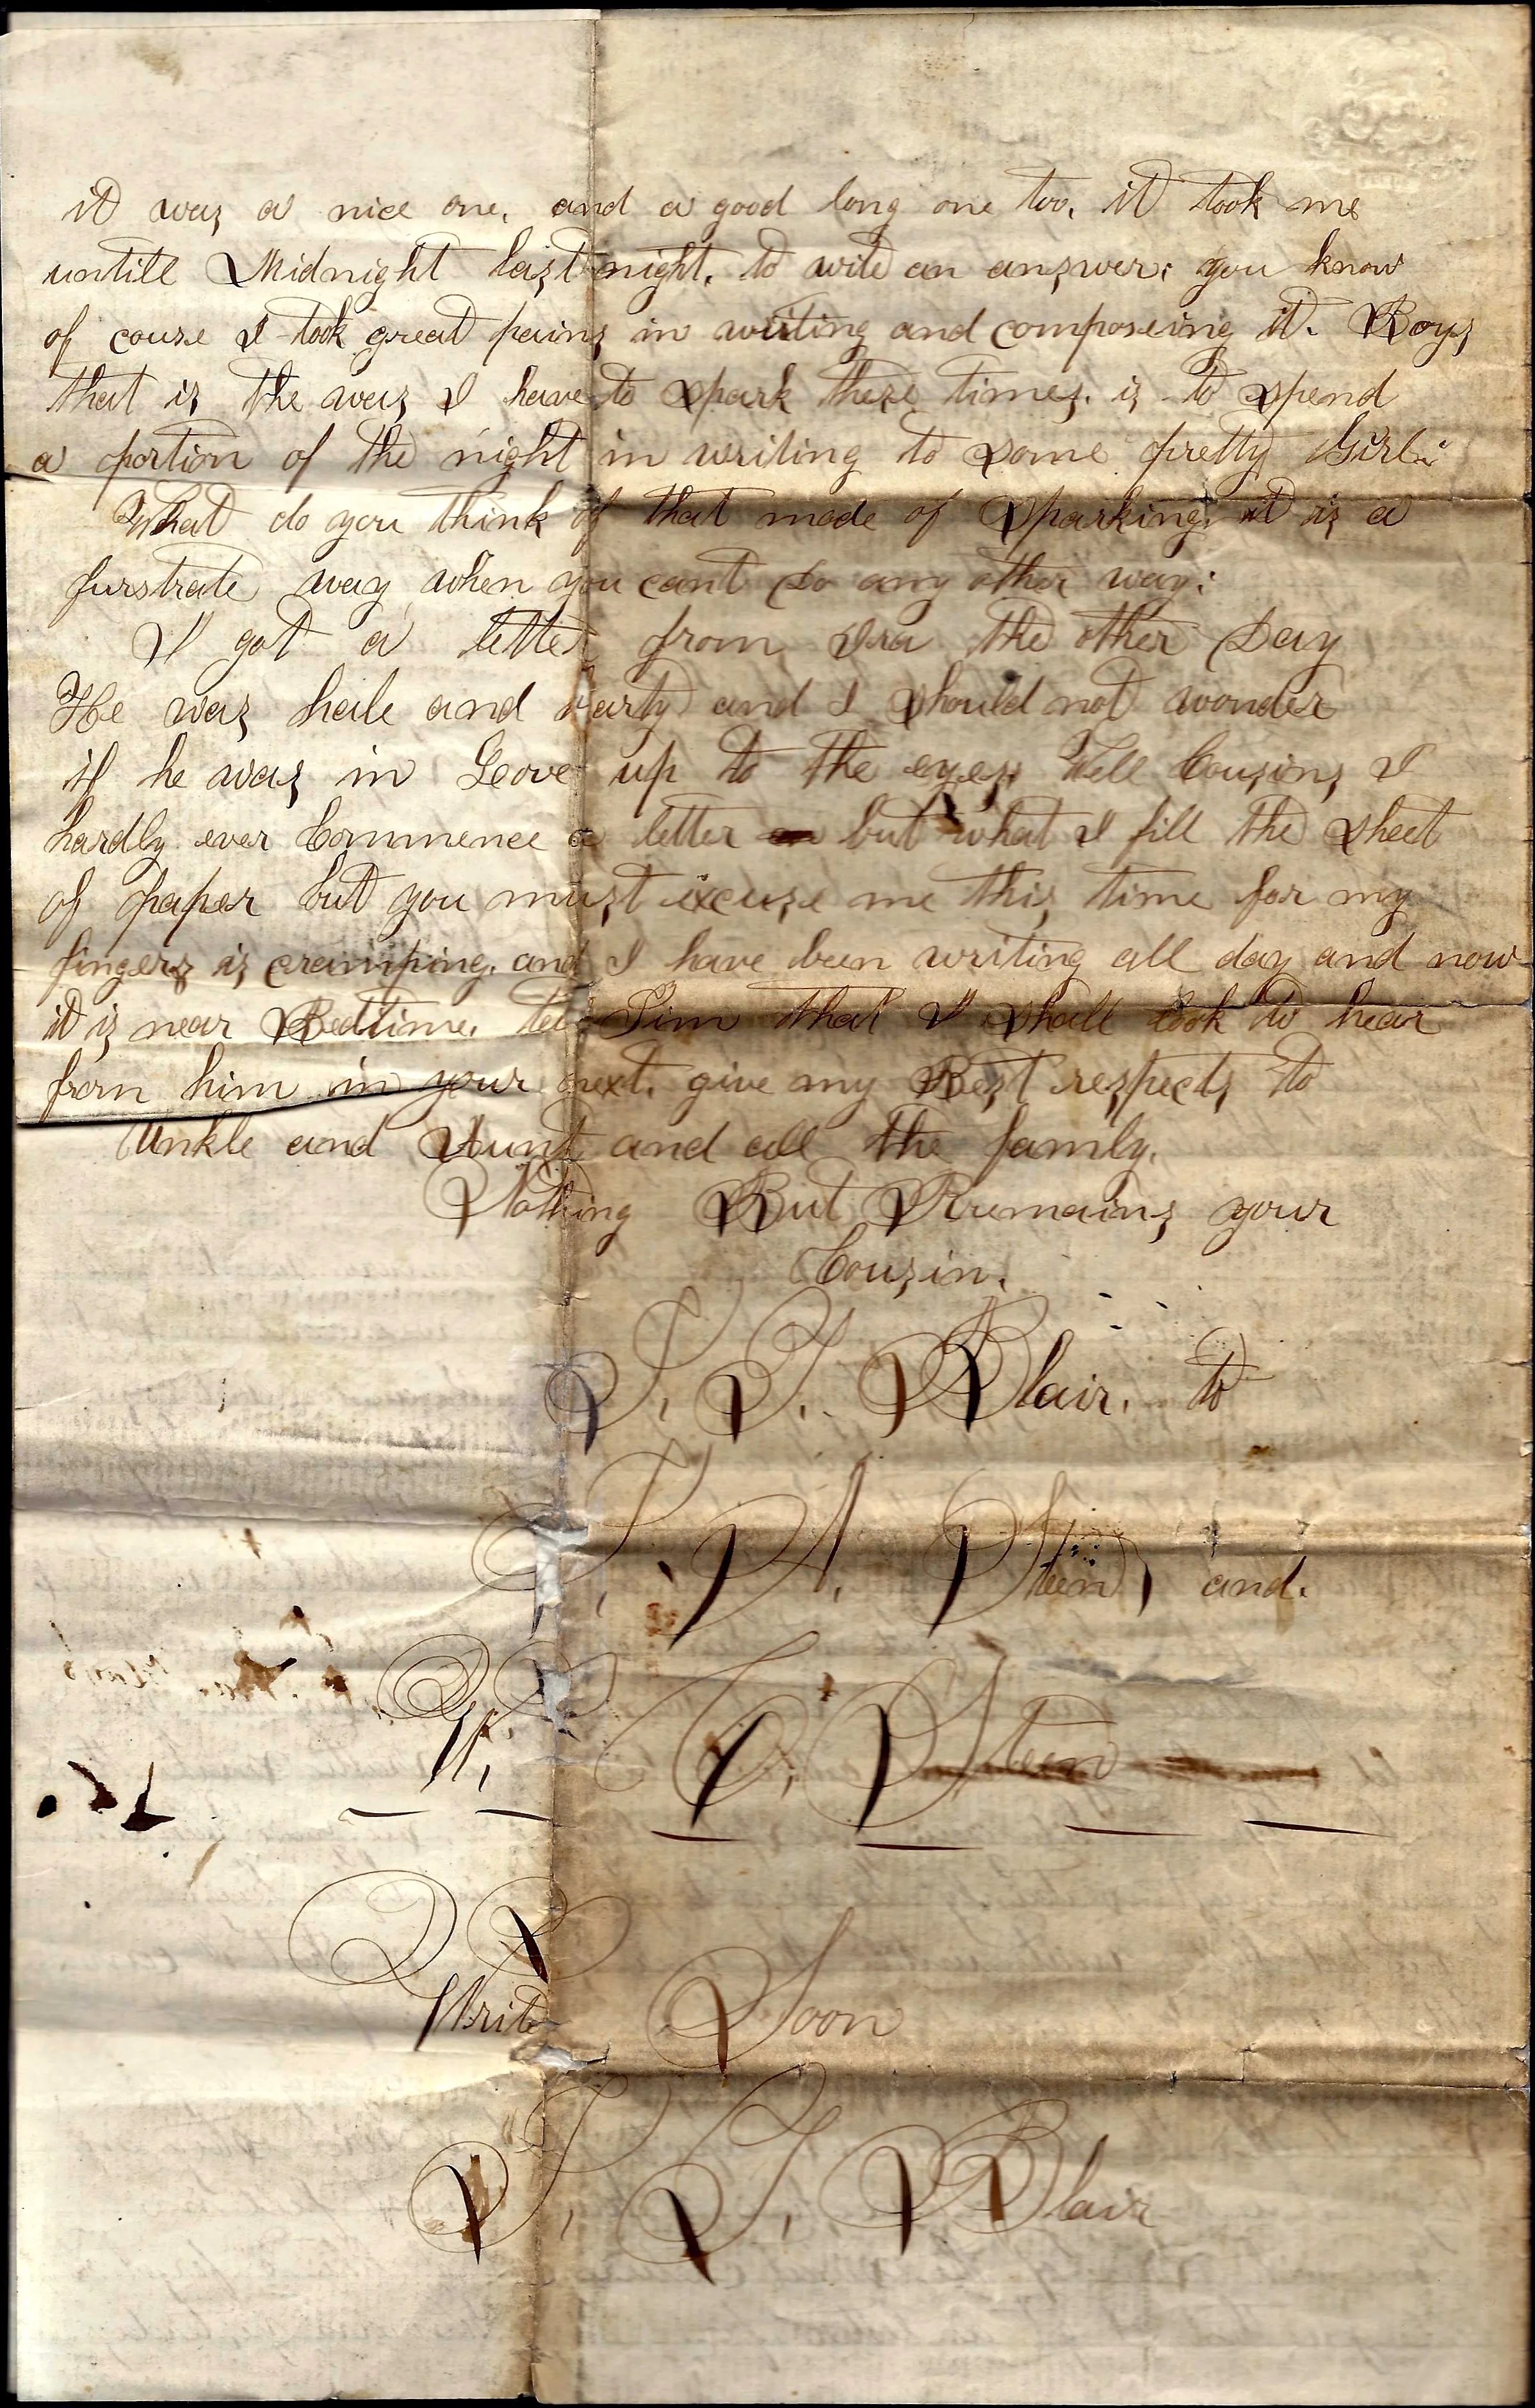 it was a nice one, and a good long one too, it took me
untill Midnight last night, to wite an answer; you know
of couse I took great pains in writing and composeing it. Boys
that is the way I have to spark these times, is to spend
a portion of the night in writing to some pretty Girl;
What do you think of that mode of Sparking, it is a
furstrate way when you cant do any other way;
I got a letter from Ira the other Day
He was hale and harty and I should not wonder
if he was in Love up to the eyes; Well Cousins I
hardly ever Commence a letter but what I fill the sheet
of paper but you must excuse me this time for my
fingers is cramping, and I have been writing all day and now
it is near Bedtime, tell Jim that I shall look to hear
from him in your next, give my Best respects to
Unkle and Aunt and all the family.
Nothing But Rremains your
Cousin.
S. S. Blair. to
S. A. Steen, and.
W. C. Steen
Write Soon
S. S. Blair